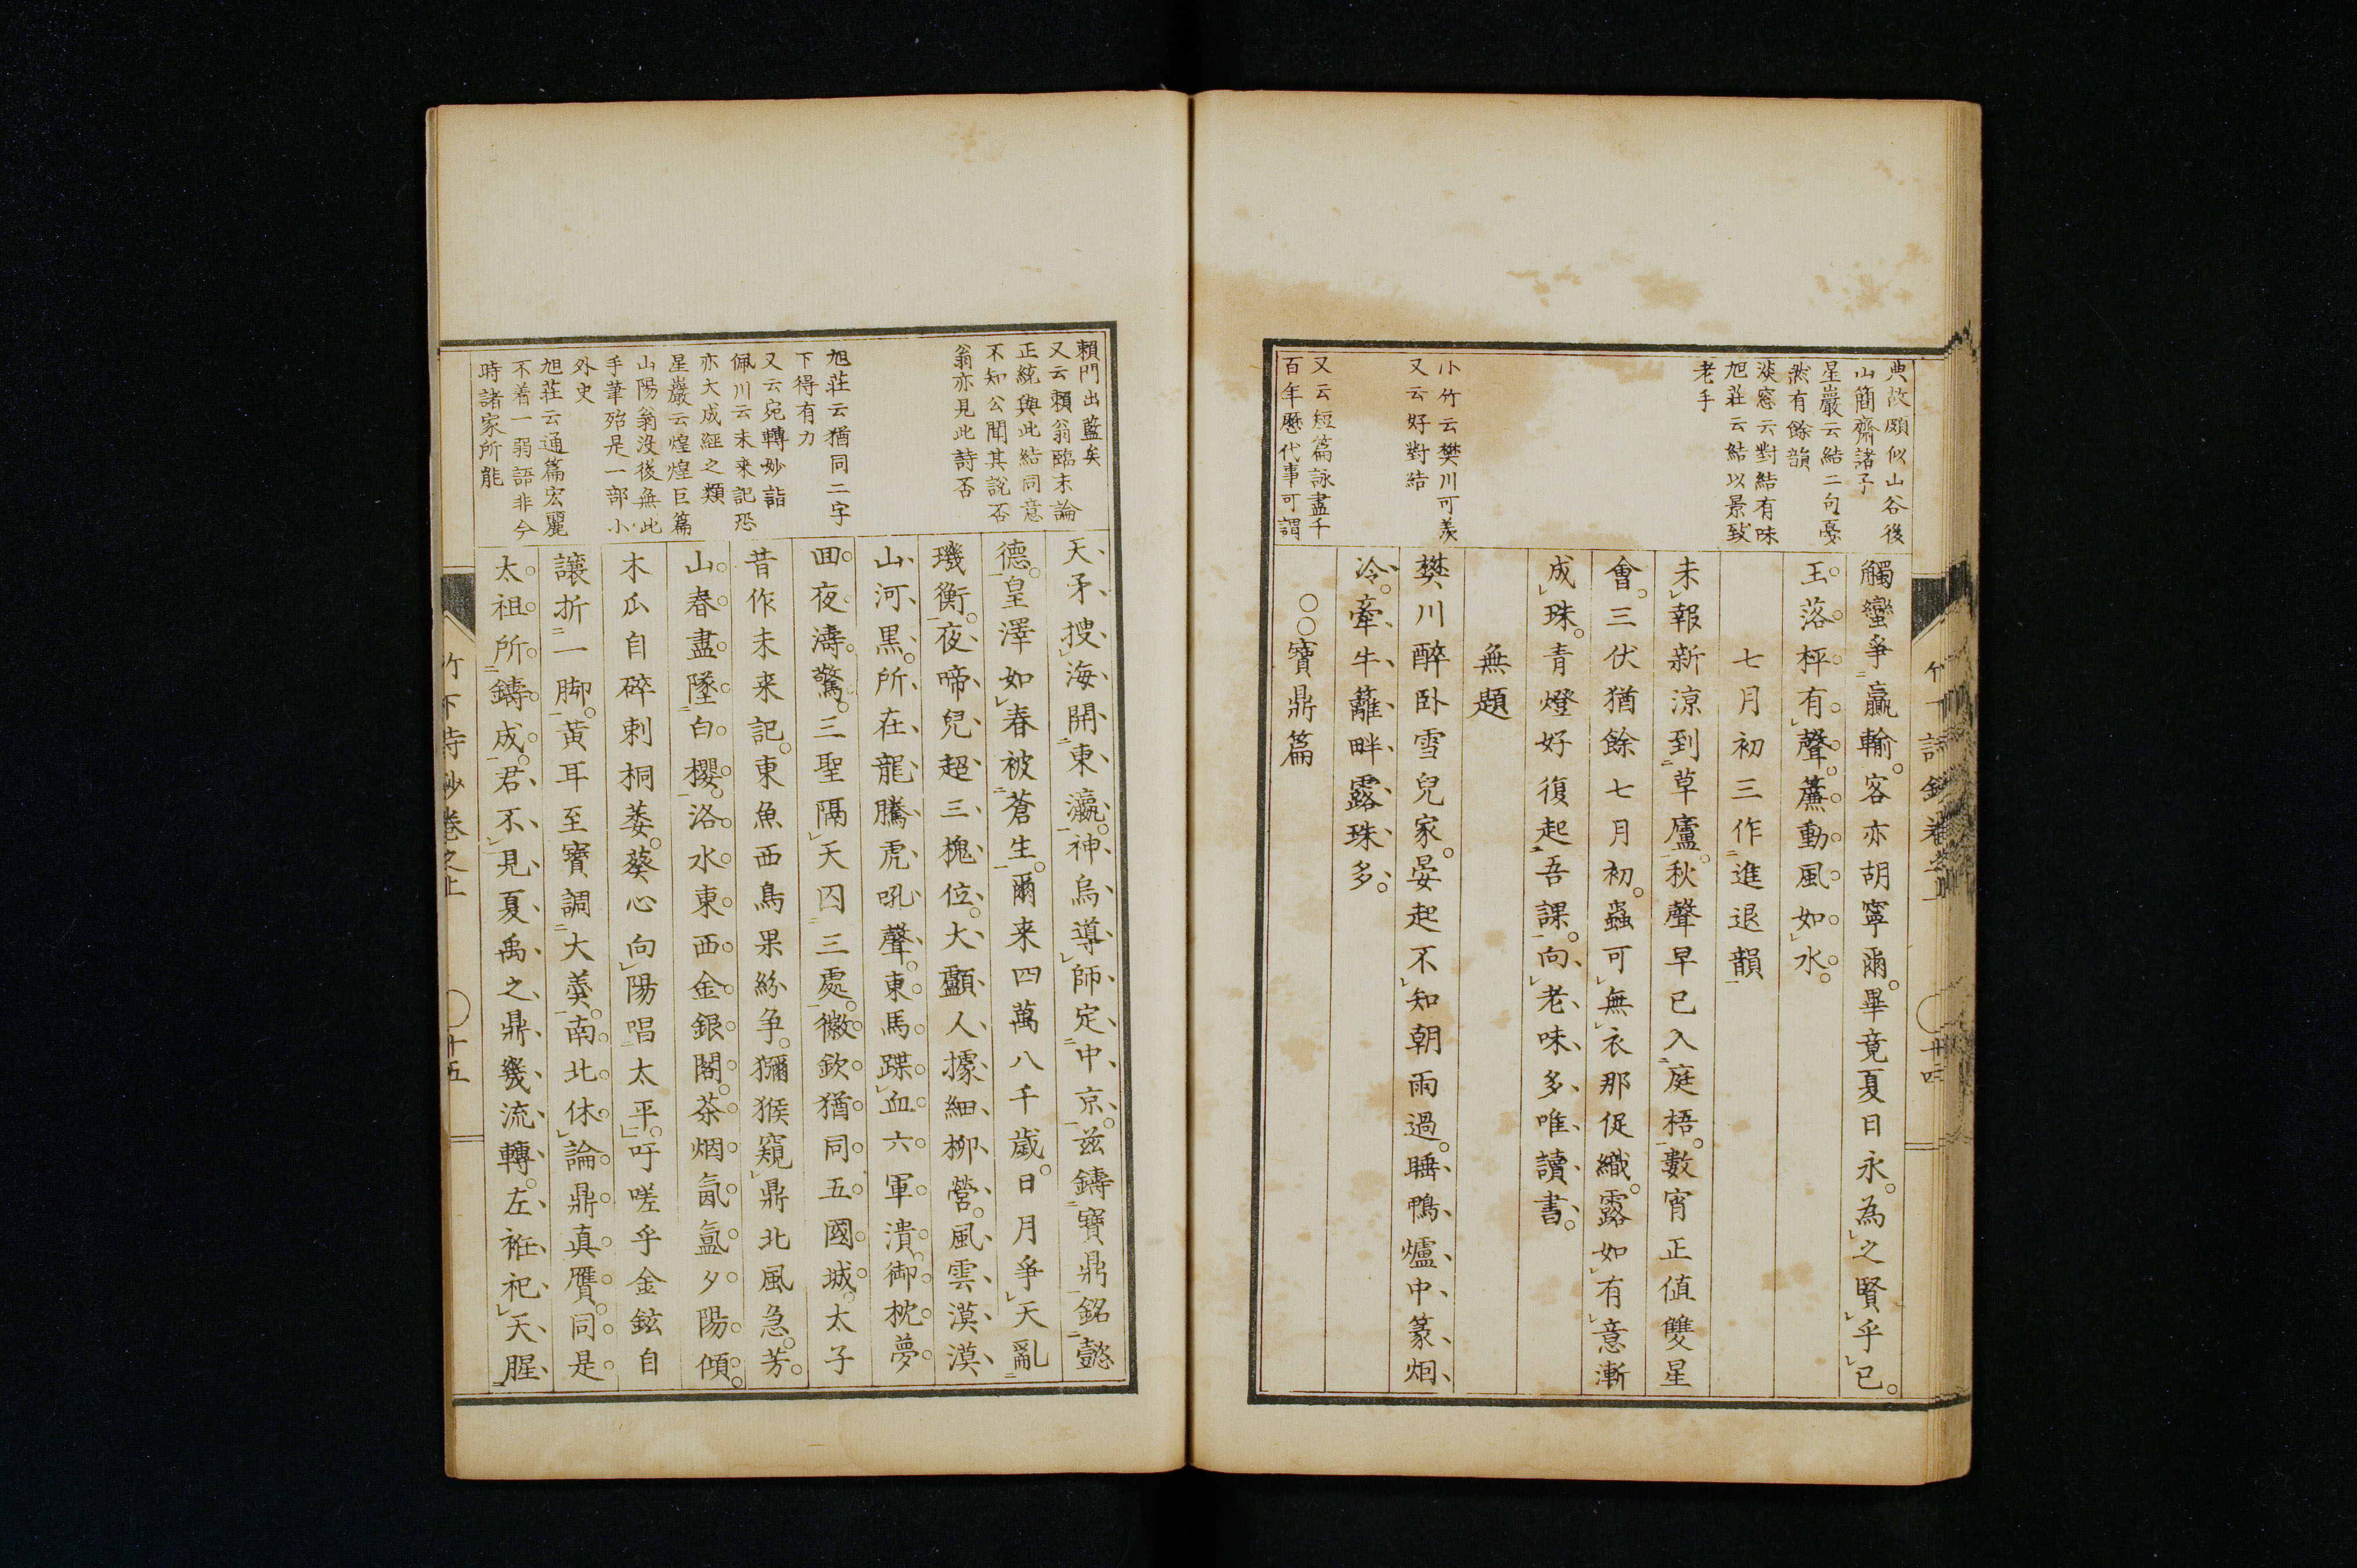 典故頗似山谷後
山簡齋諸子
星巖云結二句戞
然有餘韻
淡窓云對結有味
旭莊云結以景致
老手
小竹云樊川可羨
又云好對結
又云短篇詠盡千
百年歷代事可謂
觸蠻爭贏輸客亦胡寧爾畢竟夏日永為之賢乎已
玉落枰有聲簾動風如水
七月初三作進退韻
未報新涼到草廬秋聲早已入庭梧數宵正值雙星
會三伏猶餘七月初蟲可無衣那促織露如有意漸
成珠青燈好復起吾課向老味多唯讀書
無題
樊川醉卧雪兒家晏起不知朝雨過睡鴨爐中篆烟
冷牽牛籬畔露珠多
○○寶鼎篇
廿四
賴門出藍矣
又云賴翁臨末論
正統與此結同意
不知公聞其說否
翁亦見此詩否
旭莊云猶同二字
下得有力
又云宛轉妙詣
佩川云未來記恐
亦大成經之類
星巖云煌煌巨篇
山陽翁沒後無此
手筆殆是一部小
外史
旭莊云通篇宏麗
不着一弱語非今
時諸家所能
天矛搜海開東瀛神烏導師定中京茲鑄寶鼎銘懿
德皇澤如春被蒼生爾来四萬八千歲日月爭天亂
璣衡夜啼兒超三槐位大顱人據細柳營風雲漠漠
山河黑所在龍騰虎吼聲東馬蹀血六軍潰御枕夢
回夜濤驚三聖隔天囚三處徽欽猶同五國城太子
昔作未来記東魚西鳥果紛争獼猴窺鼎北風急芳
山春盡墜白櫻洛水東西金銀閣茶烟氤氳夕陽傾
木瓜自碎刺桐萎葵心向陽唱太平吁嗟乎金鉉自
讓折一脚黃耳至寶調大羹南北休論鼎真贋同是
太祖所鑄成君不見夏禹之鼎幾流轉左袵祀天腥
竹下詩鈔卷之上
十五